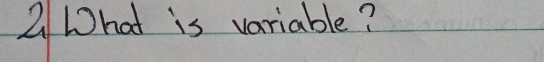 2, What is variable?